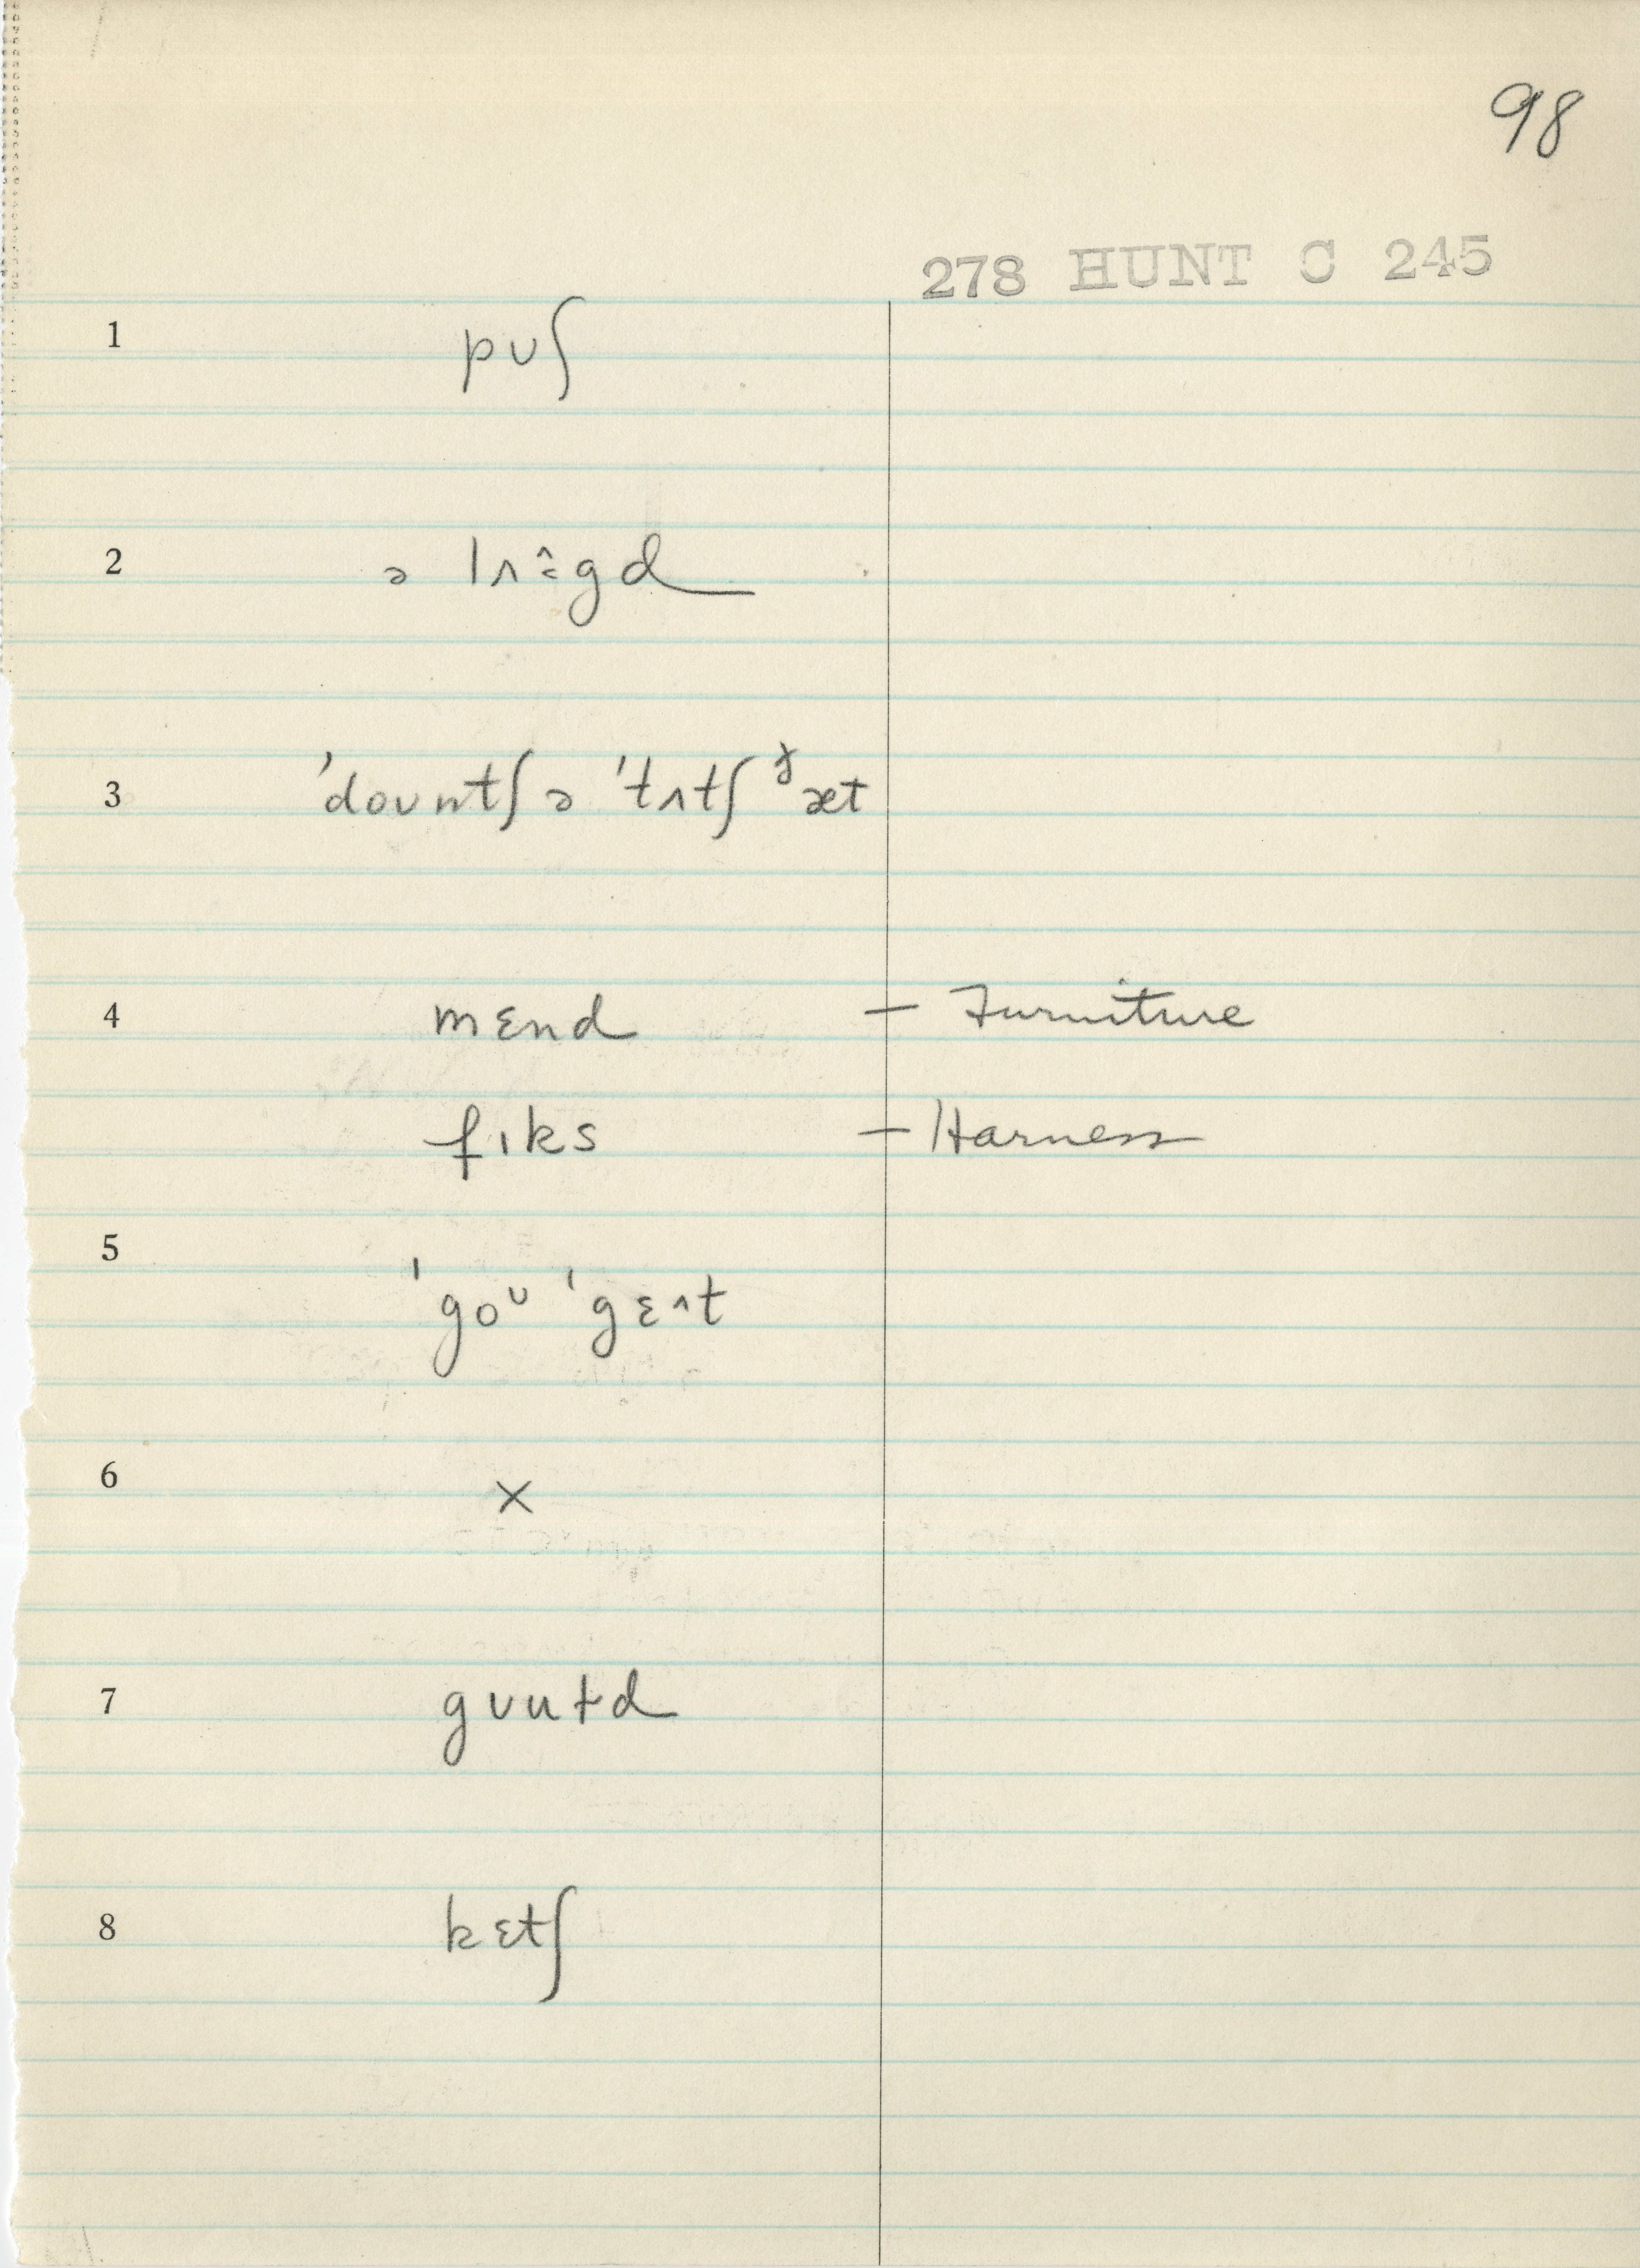 98
278 HUNT C 245
1 pʊʃ
2 ə lʌ˄̨gd
3 ˈdoʊntʃ ə ˈtʌtʃ ᶞæt
4 mɛnd – Furniture
fɪks – Harness
5 ˈgoᶷ ˈgɛ˄t
6 ×
7 gʊutd
8 kɛtʃ